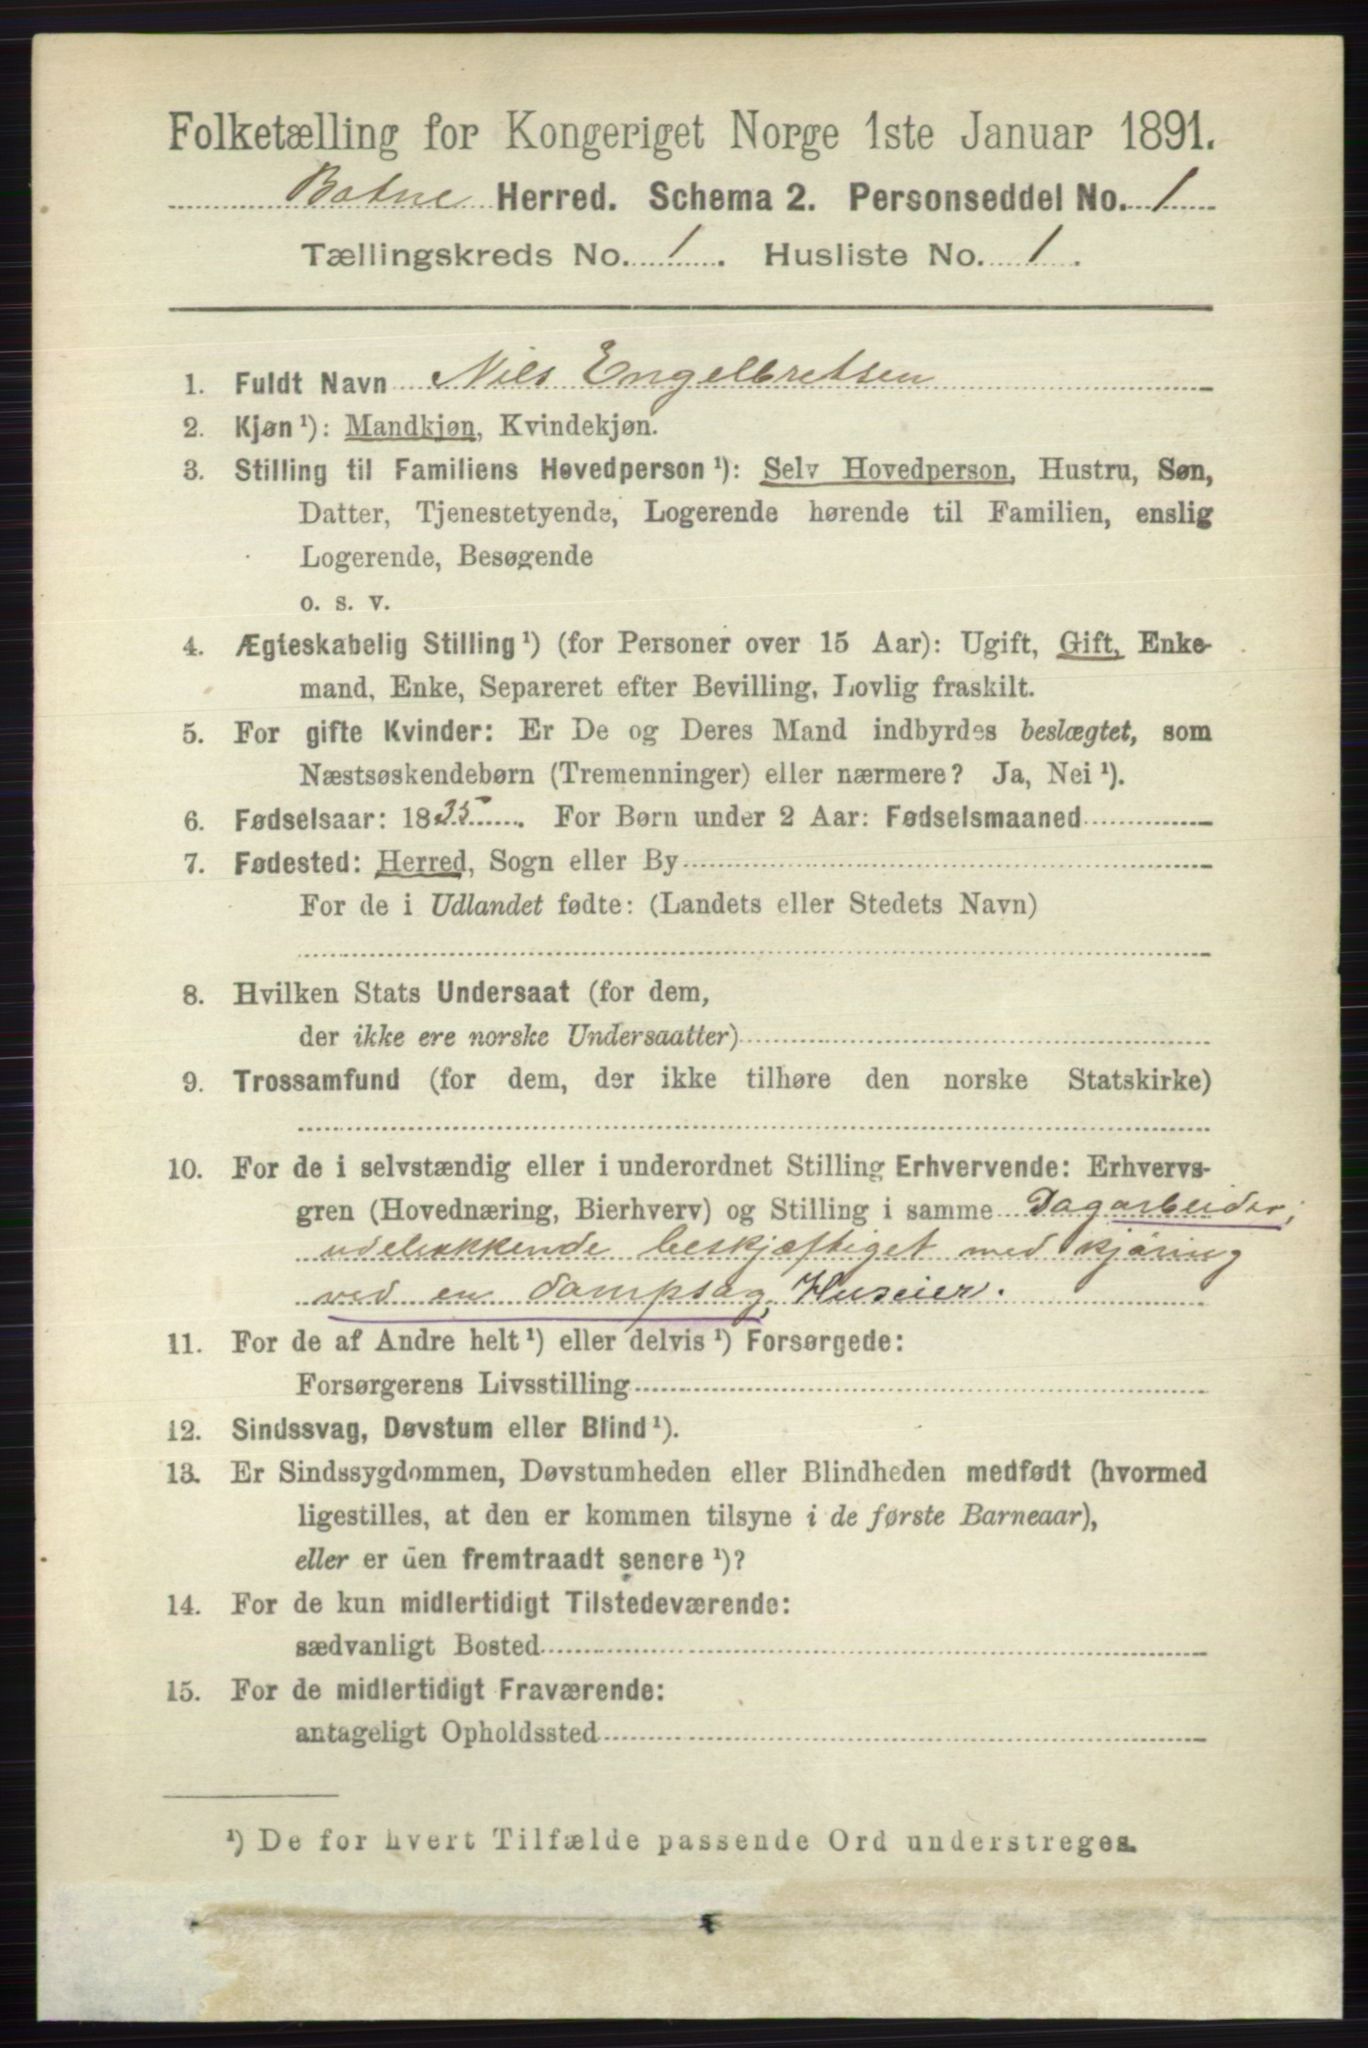 Folketælling for Kongeriget Norge 1ste Januar 1891.
Botne Herred. Schema 2. Personseddel No. 1
Tællingskreds No. 1. Husliste No. 1.
1. Fuldt Navn Nils Engelbretsen
2. Kjøn ¹): Mandkjøn, Kvindekjøn.
3. Stilling til Familiens Hovedperson ¹): Selv Hovedperson, Hustru, Søn,
Datter, Tjenestetyende, Logerende hørende til Familien, enslig
Logerende, Besøgende
o. s. v.
4. Ægteskabelig Stilling ¹) (for Personer over 15 Aar): Ugift, Gift, Enke-
mand, Enke, Separeret efter Bevilling, Lovlig fraskilt.
5. For gifte Kvinder: Er De og Deres Mand indbyrdes beslægtet, som
Næstsøskendebørn (Tremenninger) eller nærmere? Ja, Nei ¹).
6. Fødselsaar: 1835. For Børn under 2 Aar: Fødselsmaaned
7. Fødested: Herred, Sogn eller By
For de i Udlandet fødte: (Landets eller Stedets Navn)
8. Hvilken Stats Undersaat (for dem,
der ikke ere norske Undersaatter)
9. Trossamfund (for dem, der ikke tilhøre den norske Statskirke)
10. For de i selvstændig eller i underordnet Stilling Erhvervende: Erhvervs-
gren (Hovednæring, Bierhverv) og Stilling i samme Dagarbeider;
udelukkende beskjæftiget med kjøring
ved en dampsag, Huseier.
11. For de af Andre helt ¹) eller delvis ¹) Forsørgede:
Forsørgerens Livsstilling
12. Sindssvag, Døvstum eller Blind ¹).
13. Er Sindssygdommen, Døvstumheden eller Blindheden medfødt (hvormed
ligestilles, at den er kommen tilsyne i de første Barneaar),
eller er den fremtraadt senere ¹)?
14. For de kun midlertidigt Tilstedeværende:
sædvanligt Bosted
15. For de midlertidigt Fraværende:
antageligt Opholdssted
¹) De for hvert Tilfælde passende Ord understreges.